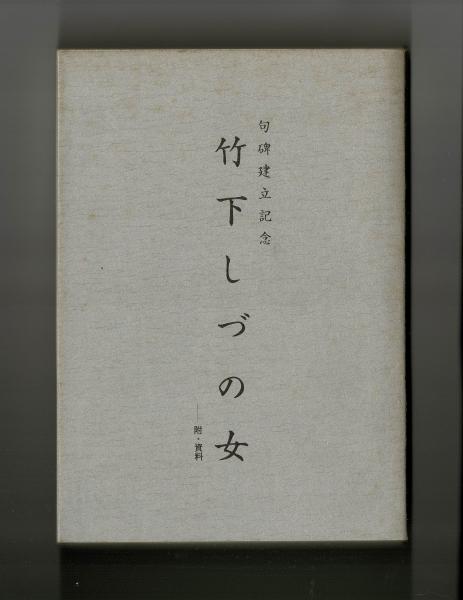 句碑建立記念
竹下しづの女
──附・資料